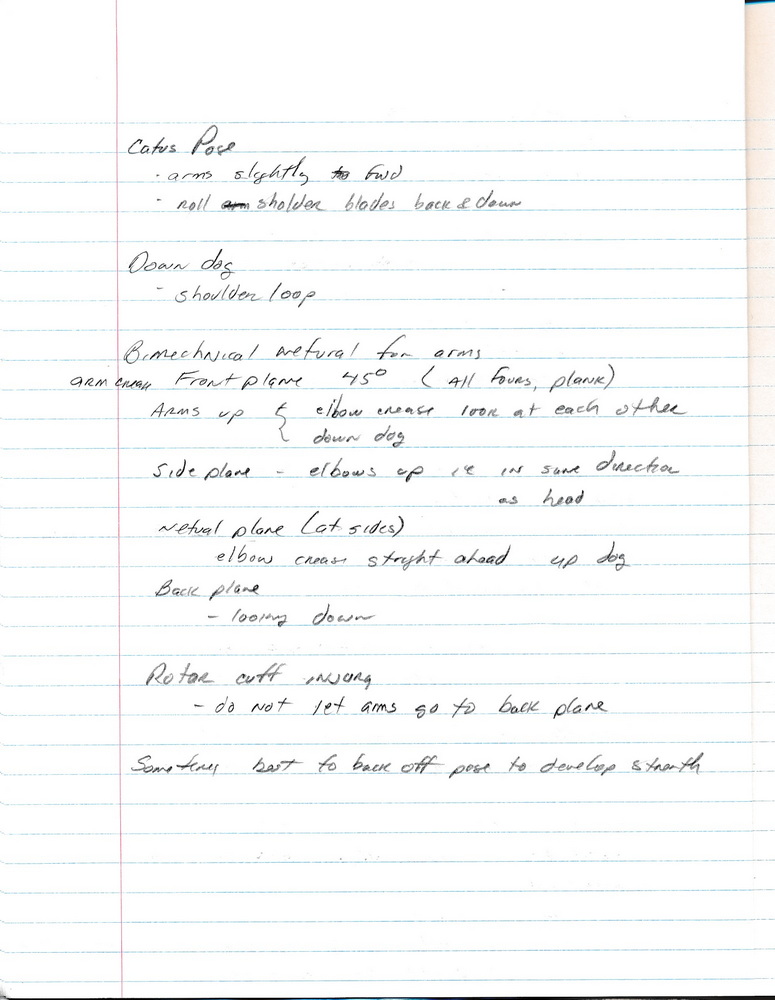 Catus Pose
· arms slightly to fwd
- roll arm sholder blades back & down
Down dog
- shoulder loop
Bimechnical netural for arms
arm creas Front plane 45° (All fours, plank)
Arms up { elbow crease look at each other
down dog
Side plane - elbows up ie in same direction
as head
Netual plane (at sides)
elbow crease stright ahead up dog
Back plane
- looking down
Rotar cuff injury
- do not let arms go to back plane
Sometimes best to back off pose to develop strenth